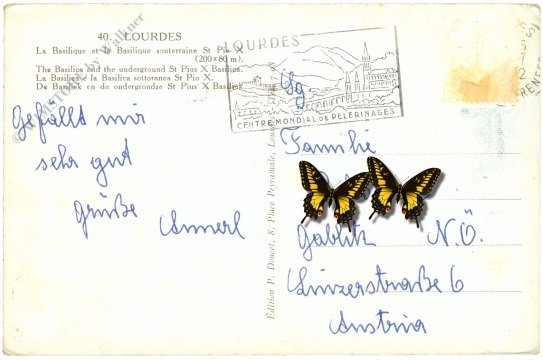 40. LOURDES
La Basilique et la Basilique souterraine St Pie X
(200×80 m).
The Basilica and the underground St Pius X Basilica.
La Basilica e la Basilica sottoranea St Pio X.
De Basiliek en de ondergrondse St Pius X Basiliek
Gefällt mir
sehr gut
Grüße
Annerl
LOURDES
CENTRE MONDIAL DE PÈLERINAGES
Edition P. Doucet, 8, Place Peyramale, Lourdes
Sg
Familie
Gablitz N.Ö.
Linzerstraße 6
Austria